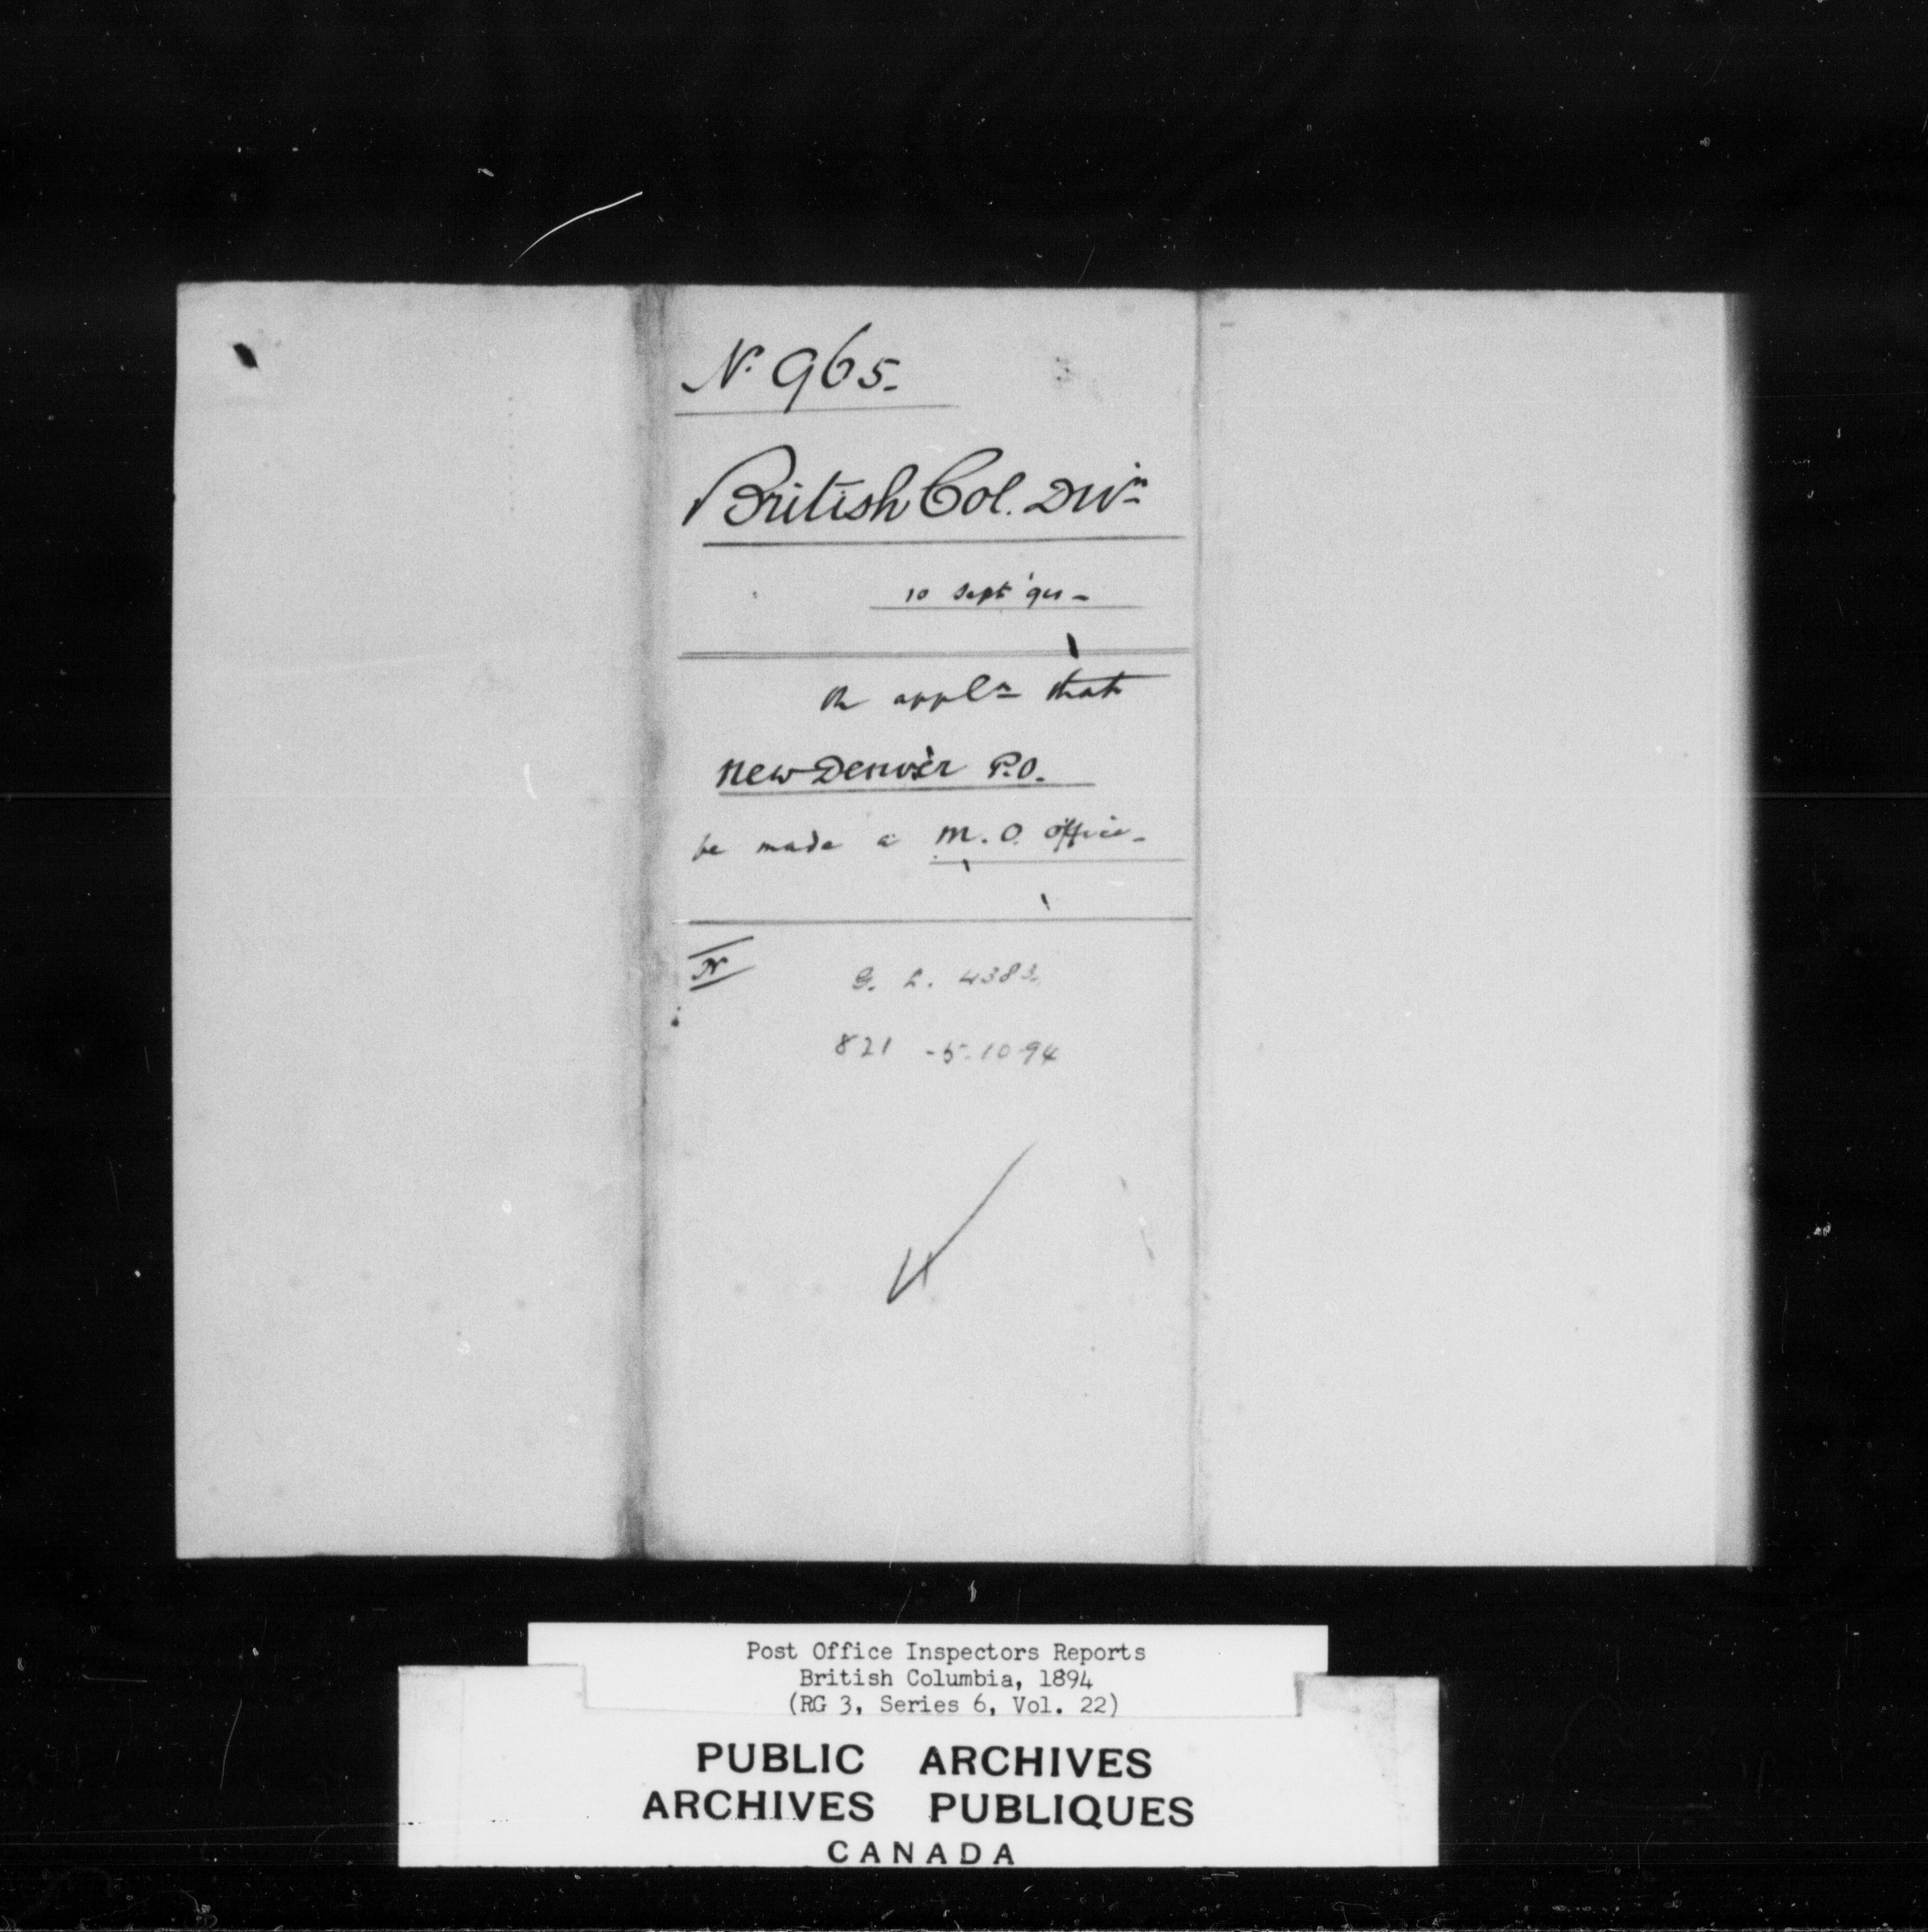 N. 965.
British Col. Divn
10 Sept '94 -
Re appln that
New Denver P.O.
be made a M.O. Office -
N
G. L. 4383.
821 - 5.10.94
Post Office Inspectors Reports
British Columbia, 1894
(RG 3, Series 6, Vol. 22)
PUBLIC ARCHIVES
ARCHIVES PUBLIQUES
CANADA